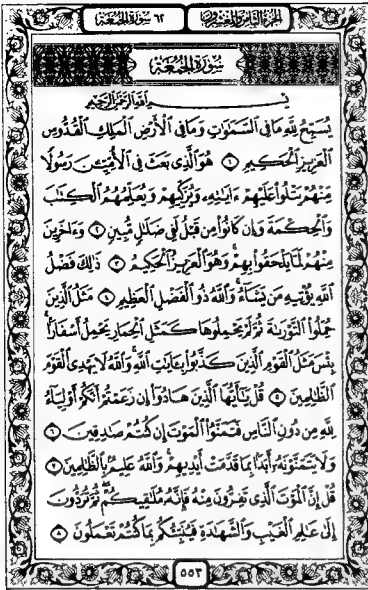 الجزء الثامن والعشرون
٦٢ سورة الجمعة
سورة الجمعة
بسم الله الرحمن الرحيم
يُسَبِّحُ لِلَّهِ مَا فِي السَّمَٰوَٰتِ وَمَا فِي الْأَرْضِ الْمَلِكِ الْقُدُّوسِ
الْعَزِيزِ الْحَكِيمِ ١ هُوَ الَّذِي بَعَثَ فِي الْأُمِّيِّۦنَ رَسُولًا
مِّنْهُمْ يَتْلُوا۟ عَلَيْهِمْ ءَايَٰتِهِۦ وَيُزَكِّيهِمْ وَيُعَلِّمُهُمُ الْكِتَٰبَ
وَالْحِكْمَةَ وَإِن كَانُوا۟ مِن قَبْلُ لَفِي ضَلَٰلٍ مُّبِينٍ ٢ وَءَاخَرِينَ
مِنْهُمْ لَمَّا يَلْحَقُوا۟ بِهِمْ وَهُوَ الْعَزِيزُ الْحَكِيمُ ٣ ذَٰلِكَ فَضْلُ
اللَّهِ يُؤْتِيهِ مَن يَشَآءُ وَاللَّهُ ذُو الْفَضْلِ الْعَظِيمِ ٤ مَثَلُ الَّذِينَ
حُمِّلُوا۟ التَّوْرَىٰةَ ثُمَّ لَمْ يَحْمِلُوهَا كَمَثَلِ الْحِمَارِ يَحْمِلُ أَسْفَارًۢا
بِئْسَ مَثَلُ الْقَوْمِ الَّذِينَ كَذَّبُوا۟ بِـَٔايَٰتِ اللَّهِ وَاللَّهُ لَا يَهْدِي الْقَوْمَ
الظَّٰلِمِينَ ٥ قُلْ يَٰٓأَيُّهَا الَّذِينَ هَادُوٓا۟ إِن زَعَمْتُمْ أَنَّكُمْ أَوْلِيَآءُ
لِلَّهِ مِن دُونِ النَّاسِ فَتَمَنَّوُا۟ الْمَوْتَ إِن كُنتُمْ صَٰدِقِينَ ٦
وَلَا يَتَمَنَّوْنَهُۥٓ أَبَدًۢا بِمَا قَدَّمَتْ أَيْدِيهِمْ وَاللَّهُ عَلِيمٌۢ بِالظَّٰلِمِينَ ٧
قُلْ إِنَّ الْمَوْتَ الَّذِي تَفِرُّونَ مِنْهُ فَإِنَّهُۥ مُلَٰقِيكُمْ ثُمَّ تُرَدُّونَ
إِلَىٰ عَٰلِمِ الْغَيْبِ وَالشَّهَٰدَةِ فَيُنَبِّئُكُم بِمَا كُنتُمْ تَعْمَلُونَ ٨
٥٥٣